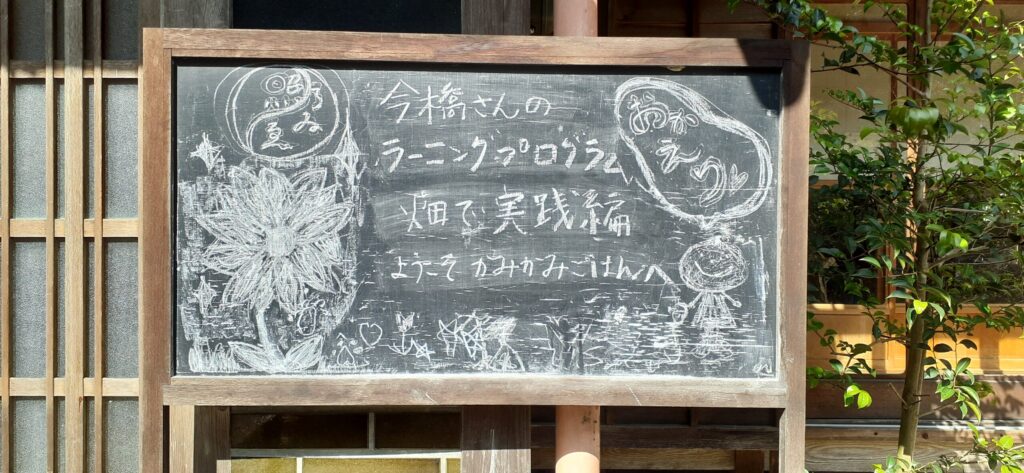 今橋さんの
ラーニングプログラム
畑で実践編
ようこそ かみかみごはんへ
おかえり